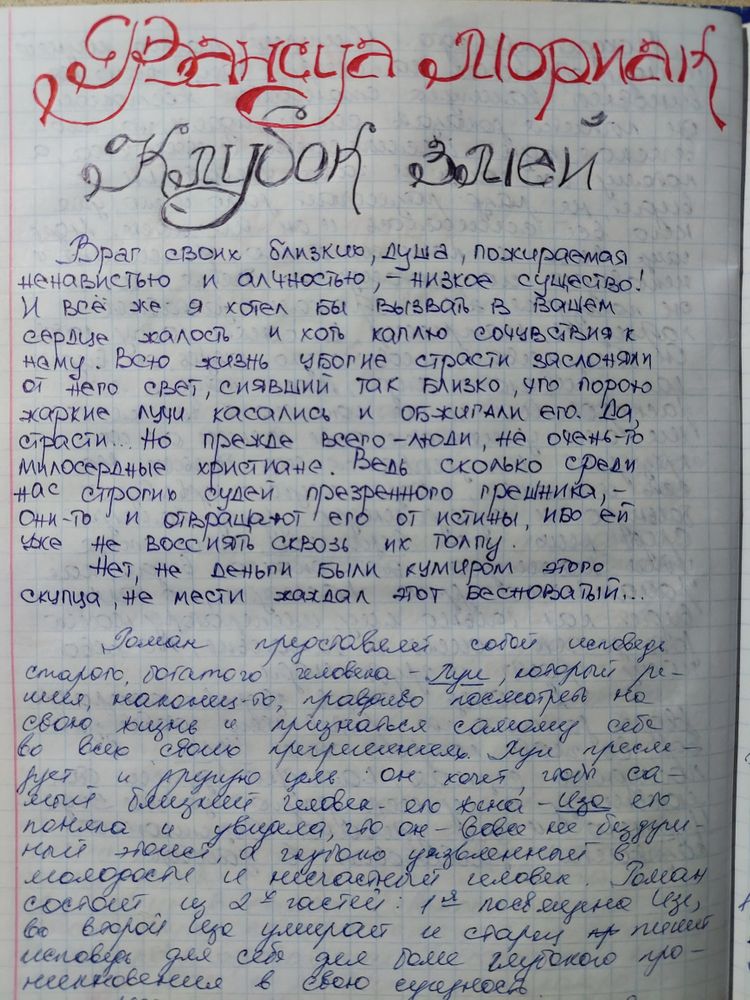 Франсуа Мориак
Клубок змей
Враг своих близких, душа, пожираемая
ненавистью и алчностью, – низкое существо!
И всё же я хотел бы вызвать в вашем
сердце жалость и хоть каплю сочувствия к
нему. Всю жизнь убогие страсти заслоняли
от него свет, сиявший так близко, что порою
жаркие лучи касались и обжигали его. Да,
страсти... Но прежде всего – люди, не очень-то
милосердные христиане. Ведь сколько среди
нас строгих судей презренного грешника, –
они-то и отвращают его от истины, ибо ей
уже не воссиять сквозь их толпу.
Нет, не деньги были кумиром этого
скупца, не мести жаждал этот бесноватый...
Роман представляет собой исповедь
старого, богатого человека – Луи, который ре-
шил, наконец-то, правдиво посмотреть на
свою жизнь и признаться самому себе
во всех своих прегрешениях. Луи пресле-
дует и другую цель: он хочет, чтобы са-
мый близкий человек – его жена – Иза его
поняла и увидела, что он – вовсе не бездуш-
ный эгоист, а глубоко уязвленный в
молодости и несчастный человек. Роман
состоит из 2х частей: 1я посвящена Изе,
во второй Иза умирает и старец пишет
исповедь для себя для более глубокого про-
никновения в свою сущность.